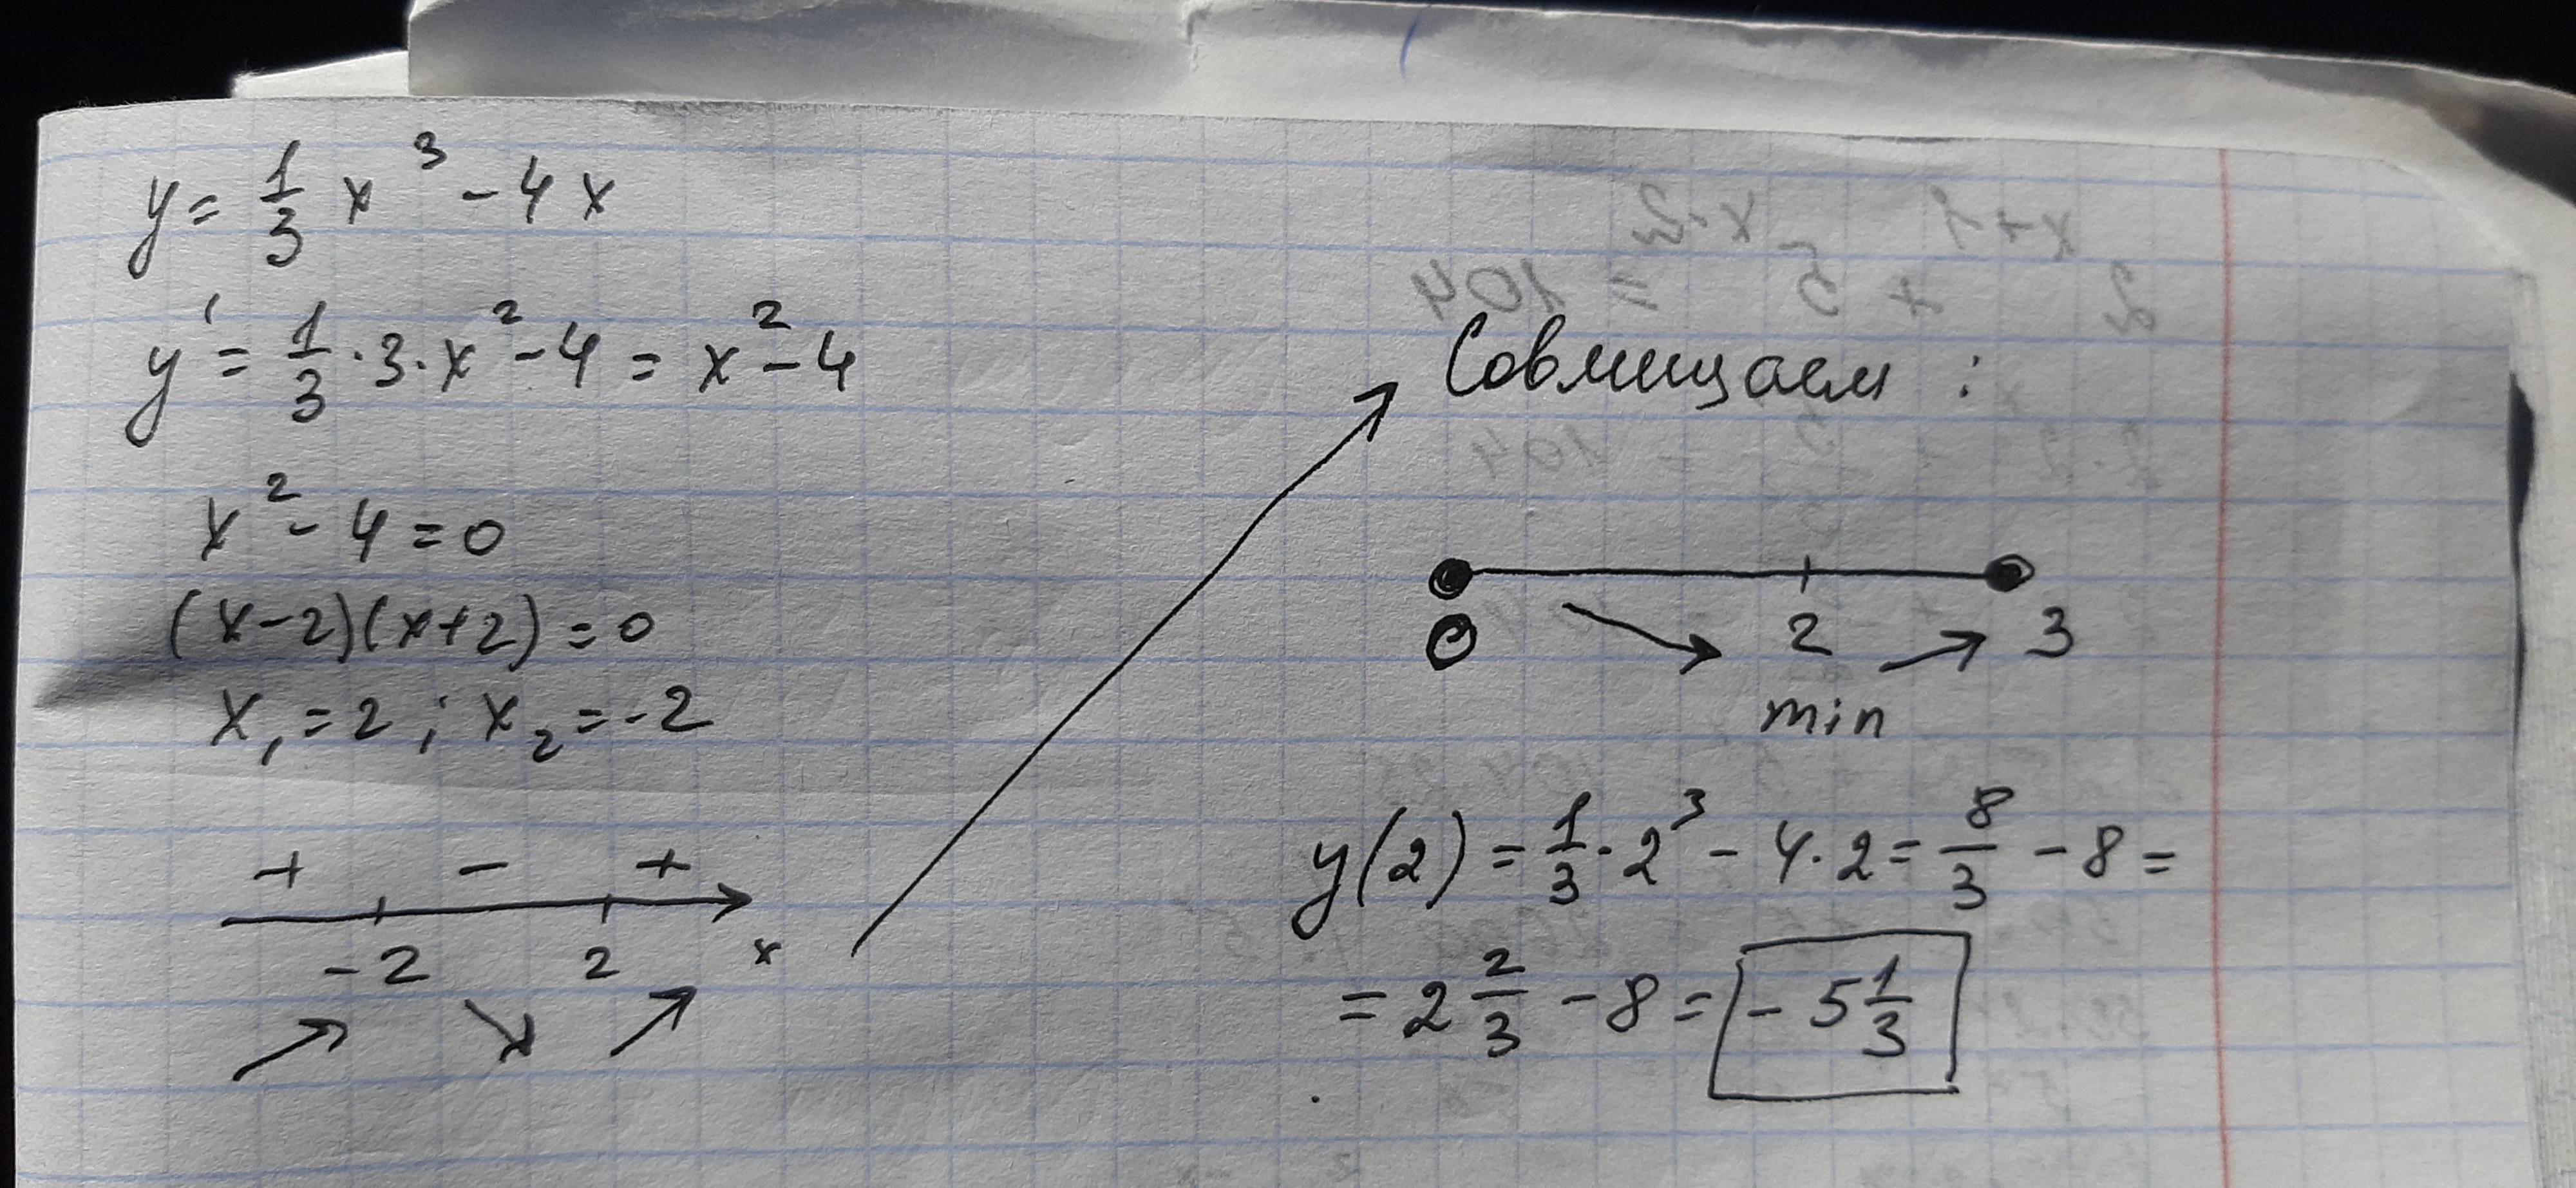 y = 1/3 x³ - 4x
y' = 1/3 · 3 · x² - 4 = x² - 4
x² - 4 = 0
(x-2)(x+2) = 0
x₁ = 2 ; x₂ = -2
+ - +
-2 2 x
Совмещаем :
0 2 3
min
y(2) = 1/3 · 2³ - 4 · 2 = 8/3 - 8 =
= 2 2/3 - 8 = - 5 1/3